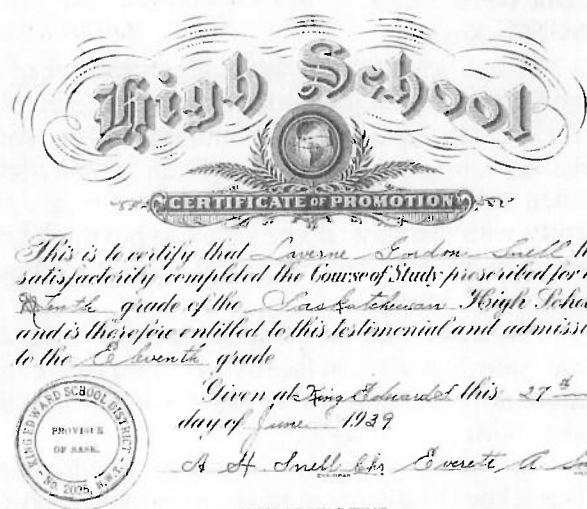 High School
CERTIFICATE OF PROMOTION
This is to certify that Laverne Gordon Snell h
satisfactorily completed the Course of Study prescribed for
Tenth grade of the Saskatchewan High Scho
and is therefore entitled to this testimonial and admiss
to the Eleventh grade
Given at King Edward this 27th
day of June 1939
A H Snell Chr Everett A
CHAIRMAN
KING EDWARD SCHOOL DISTRICT
PROVINCE
OF SASK.
No. 2035, N.W.T.